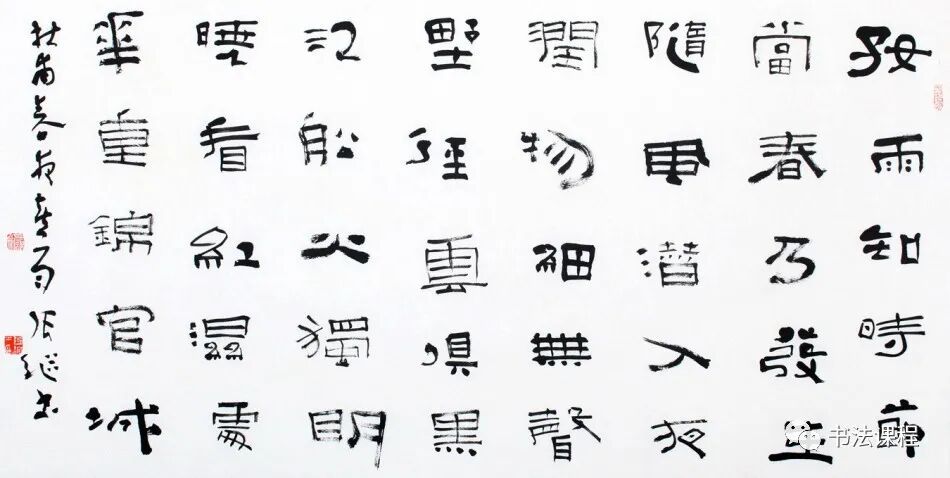 好雨知時節
當春乃發生
隨風潛入夜
潤物細無聲
野徑雲俱黑
江船火獨明
曉看紅濕處
華重錦官城
杜甫春夜喜雨 張繼書
书法课程